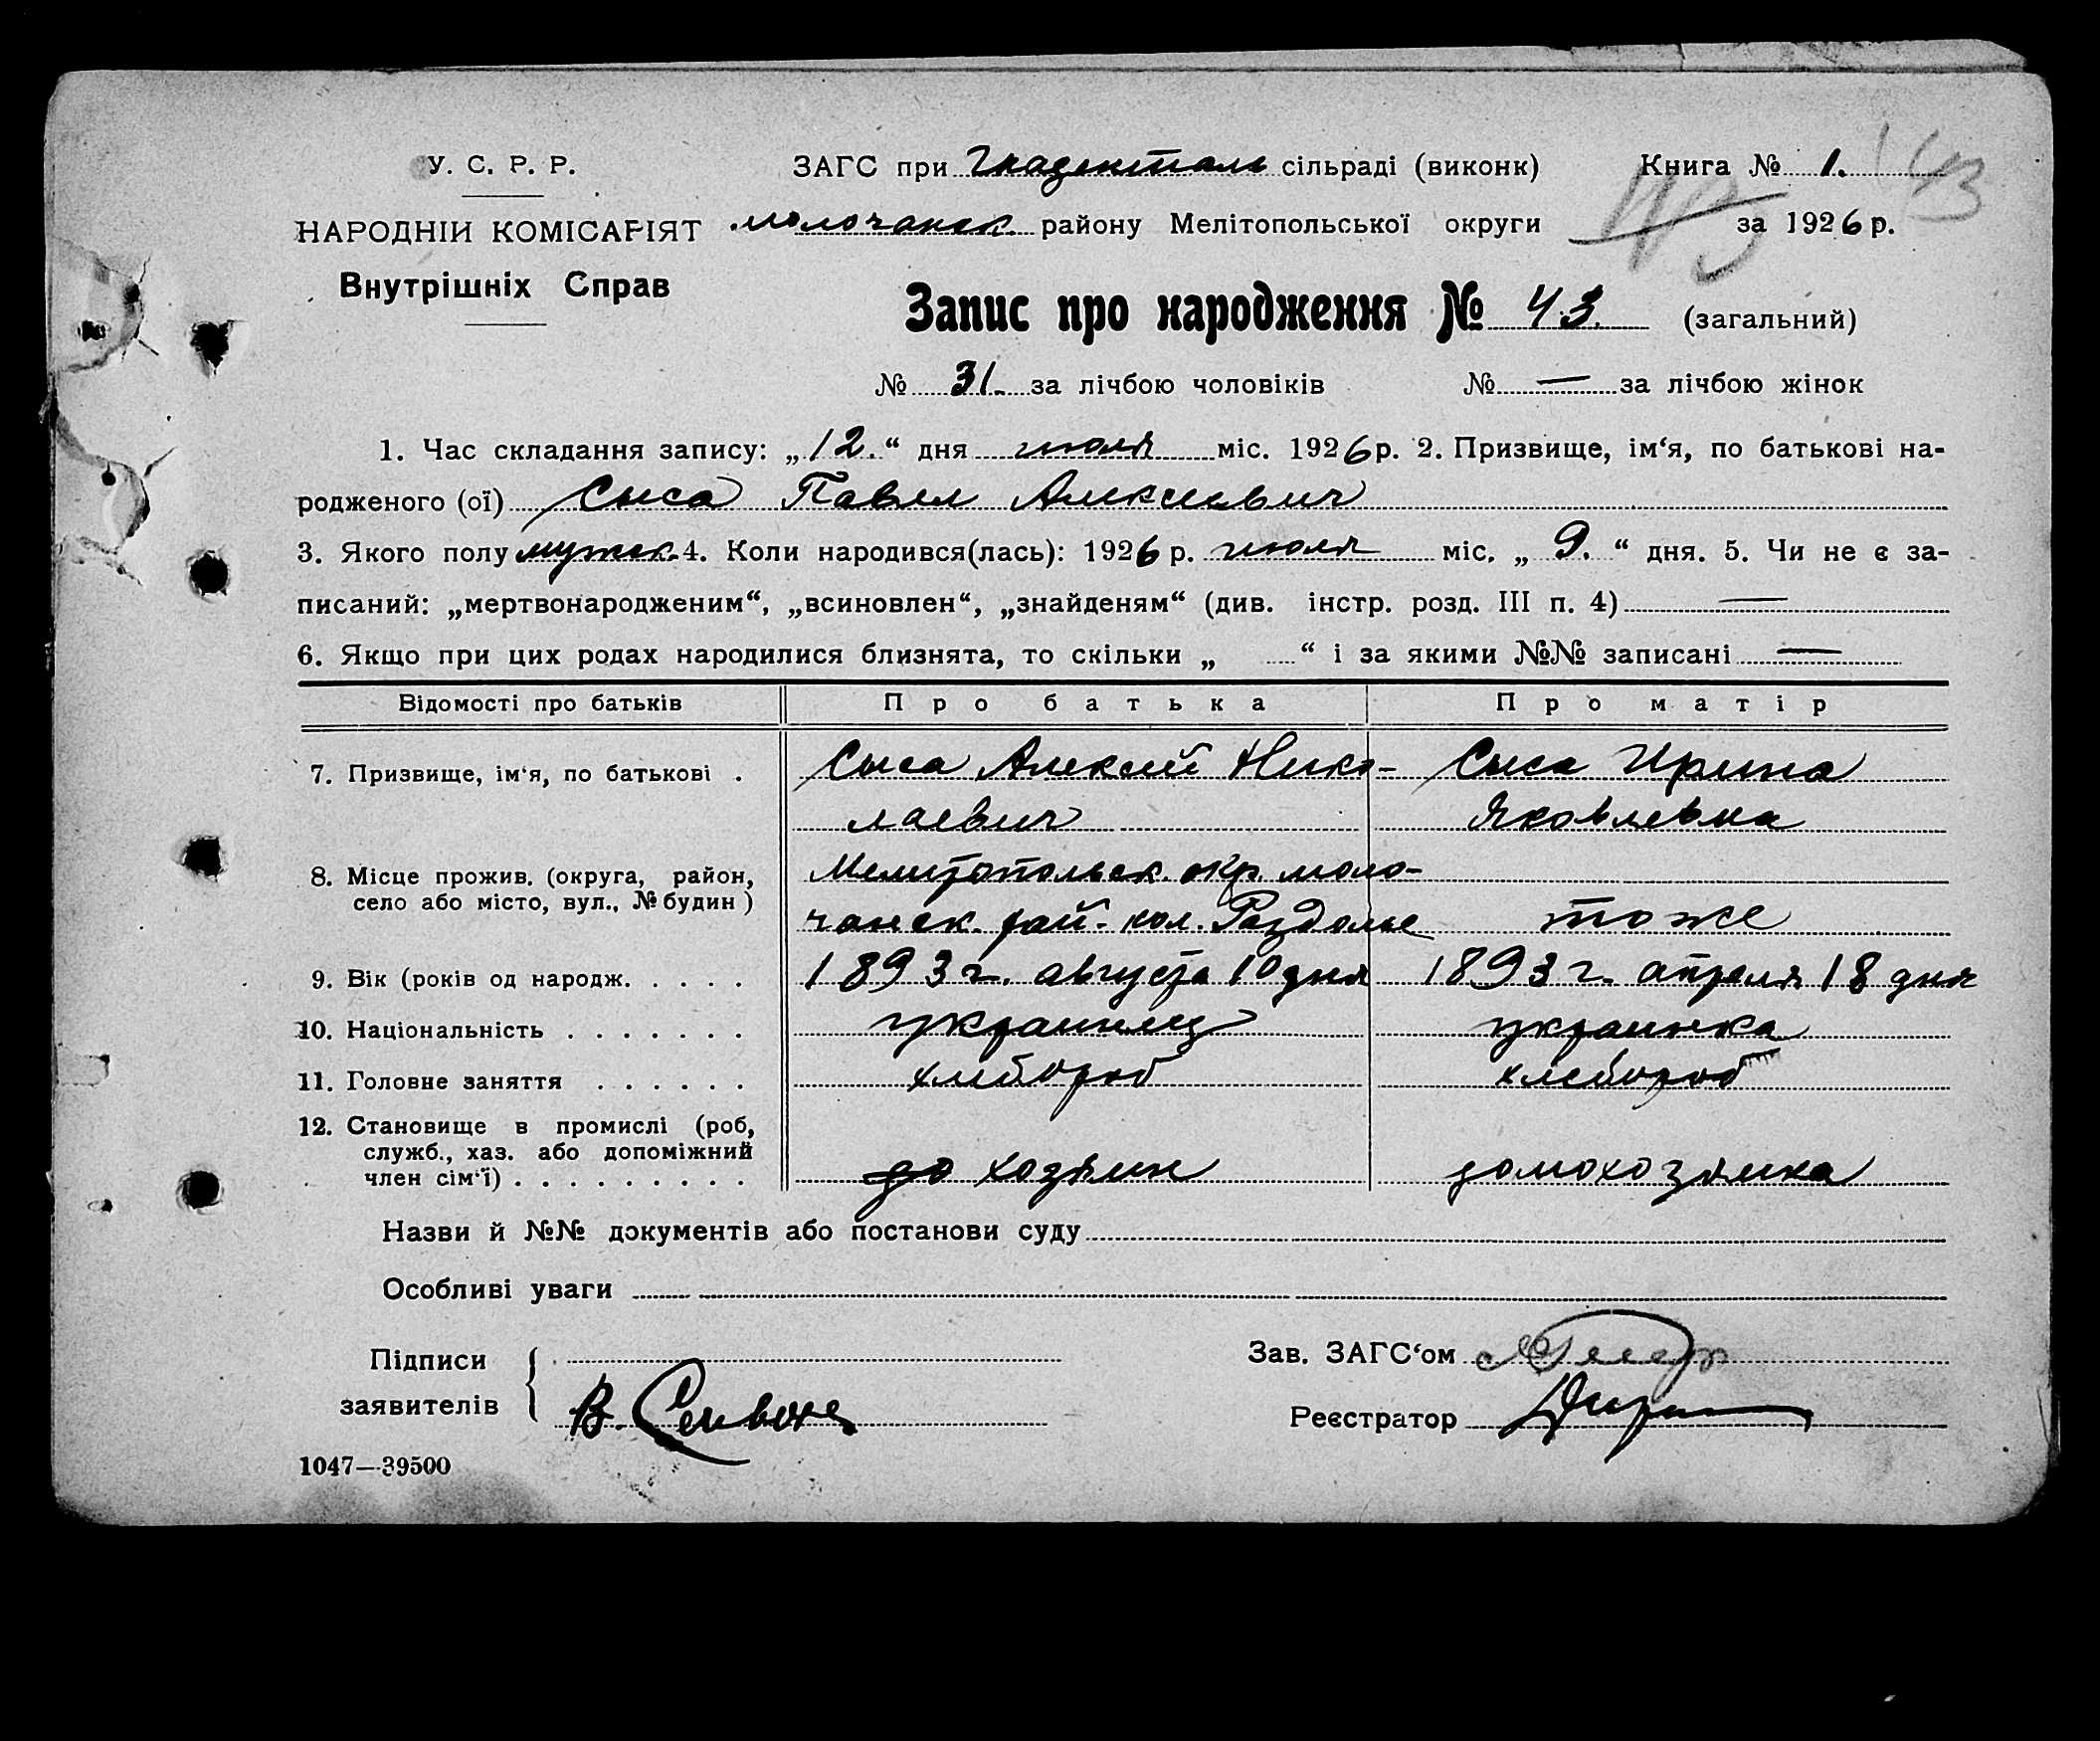 У. С. Р. Р. ЗАГС при Гнаденталь сільраді (виконк) Книга № 1. 43
НАРОДНІЙ КОМІСАРІЯТ молочанск. району Мелітопольської округи за 1926 р.
Внутрішніх Справ
Запис про народження № 43. (загальний)
№ 31. за лічбою чоловіків № — за лічбою жінок
1. Час складання запису: „12.“ дня июля міс. 1926 р. 2. Призвище, ім‘я, по батькові на-
родженого (ої) Сыса Павел Алексеевич
3. Якого полу мужск. 4. Коли народився(лась): 1926 р. июля міс. „ 9. “ дня. 5. Чи не є за-
писаний: „мертвонародженим“, „всиновлен“, „знайденям“ (див. інстр. розд. III п. 4) —
6. Якщо при цих родах народилися близнята, то скільки „ “ і за якими №№ записані —
Відомості про батьків Про батька Про матір
7. Призвище, ім‘я, по батькові . Сыса Алексей Нико- Сыса Ирина
лаевич Яковлевна
8. Місце прожив. (округа, район, Мелитопольск. окр. моло-
село або місто, вул., № будин) чанск. рай. кол. Раздолье тоже
9. Вік (років од народж. . . . . 1893 г. августа 10 дня 1893 г. апреля 18 дня
10. Національність . . . . . . . украинец украинка
11. Головне заняття . . . . . . хлебороб хлебороб
12. Становище в промислі (роб,
служб., хаз. або допоміжний
член сім‘ї) . . . . . . . . . до хозяин домохозяика
Назви й №№ документів або постанови суду
Особливі уваги
Підписи Зав. ЗАГС‘ом
заявителів В. Реєстратор
1047—39500